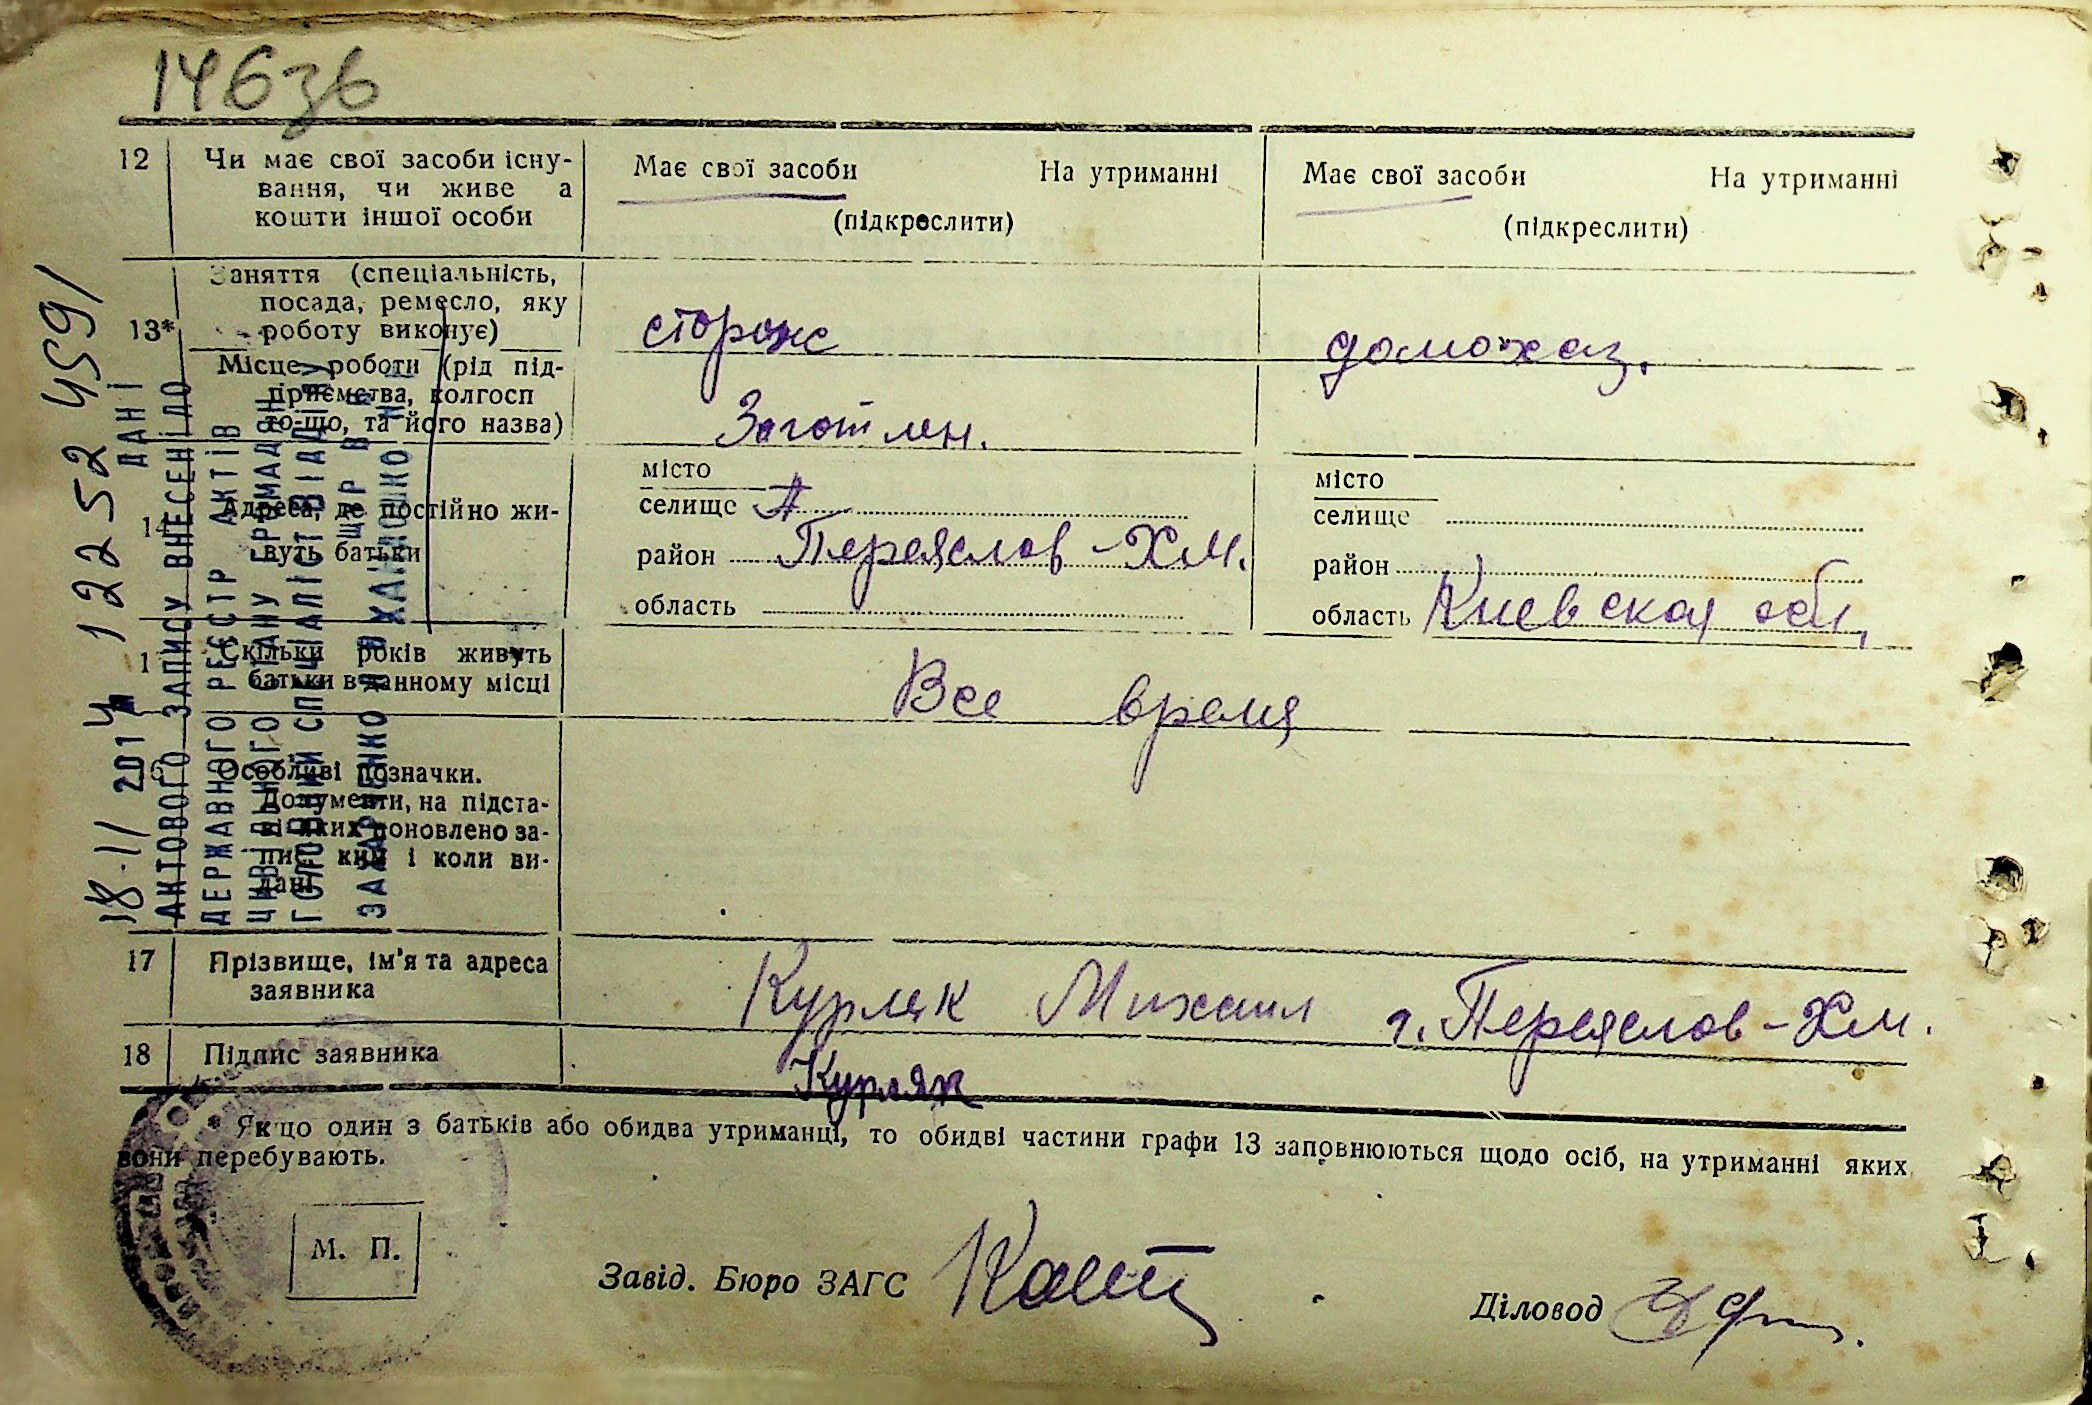 146зв
12 Чи має свої засоби існу-
вання, чи живе а
кошти іншої особи
Має свої засоби На утриманні
(підкреслити)
Має свої засоби На утриманні
(підкреслити)
13* Заняття (спеціальність,
посада, ремесло, яку
роботу виконує)
сторож
домохаз.
Місце роботи (рід під-
приємства, колгосп
то-що, та його назва)
Заготлен.
14 Адреса, де постійно жи-
вуть батьки
місто
селище
район Переяслов-Хм.
область
місто
селище
район
область Киевская обл,
1 Скільки років живуть
батьки в данному місці
Все время
16 Особливі позначки.
Документи, на підста-
ві яких поновлено за-
пис, ким і коли ви-
дані
17 Прізвище, ім'я та адреса
заявника
Курляк Михаил г. Переяслов-Хм.
18 Підпис заявника
Курляк
* Якщо один з батьків або обидва утриманці, то обидві частини графи 13 заповнюються щодо осіб, на утриманні яких
вони перебувають.
М. П.
Завід. Бюро ЗАГС
Діловод
18.11 2014 12252 4591
ДАНІ
АКТОВОГО ЗАПИСУ ВНЕСЕНІ ДО
ДЕРЖАВНОГО РЕЄСТР АКТІВ
ЦИВІЛЬНОГО СТАНУ ГРОМАДЯН
ГОЛОВНИЙ СПЕЦІАЛІСТ ВІДДІЛУ